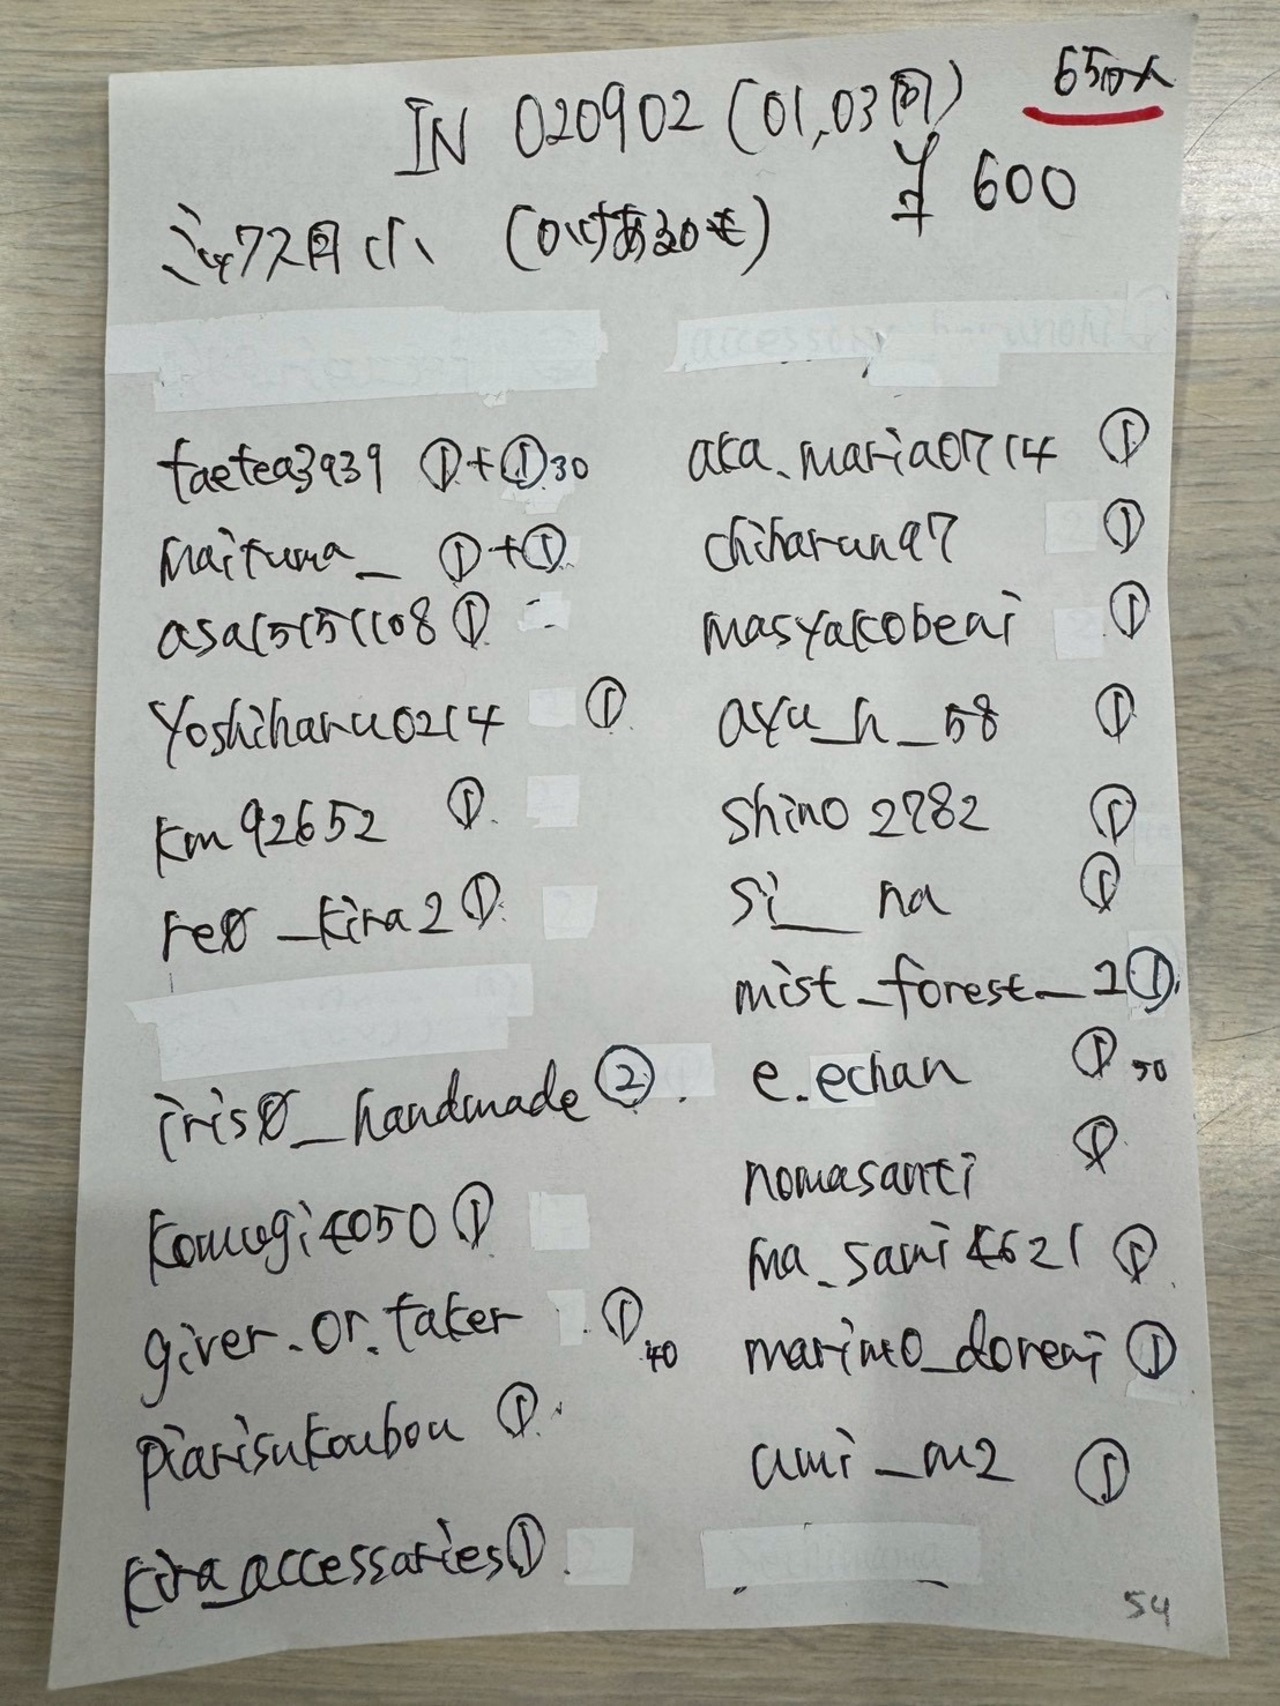 IN 020902 (01,03同)
¥600
ミックス同小
taetea3939 ①+①30
maituma_ ①+①
asa15151108 ①
yoshiharu0214 ①
km92652 ①
re0_kira2 ①
iris0_handmade ②
komugi4050 ①
giver.or.taker ①40
piarisukoubou ①
kira_accessaries ①
aka.maria0714 ①
chiharun97 ①
masyakobeni ①
ayu_h_58 ①
shino2782 ①
si__na ①
mist_forest_1 ①
e.echan ①50
nomasanti ①
ma_sami4621 ①
marimo_doremi ①
umi_m2 ①
54